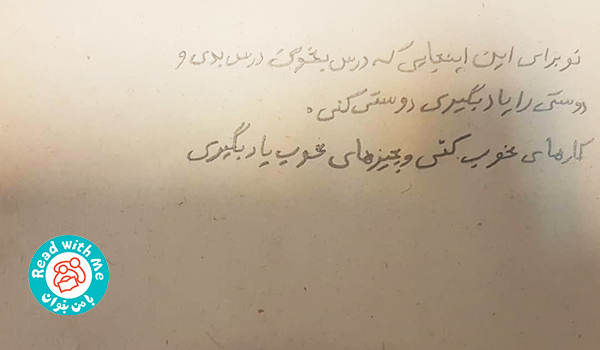 تو برای این اینجایی که درس بخونی درس بدی و
دوستی را یاد بگیری دوستی کنی.
کارهای خوب کنی و چیزهای خوب یاد بگیری
Read with Me
با من بخوان